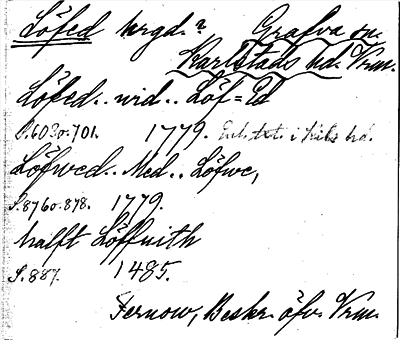 Löfed hrgd.? Grafva sn.
Karlstads hd. Vrm.
Löfed.. wid.. Löf=Ed
S.603 o. 701. 1779. i Kils hd.
Löfwed.. Med.. Löfwe,
S.876 o. 878. 1779.
halft Löffwith
S.887. 1485.
Fernow, Beskr. öfv. Vrm.